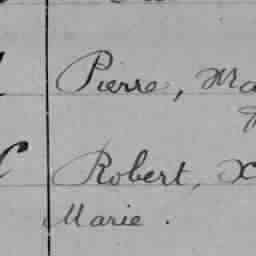 Pierre, Ma
Robert, X
Marie.